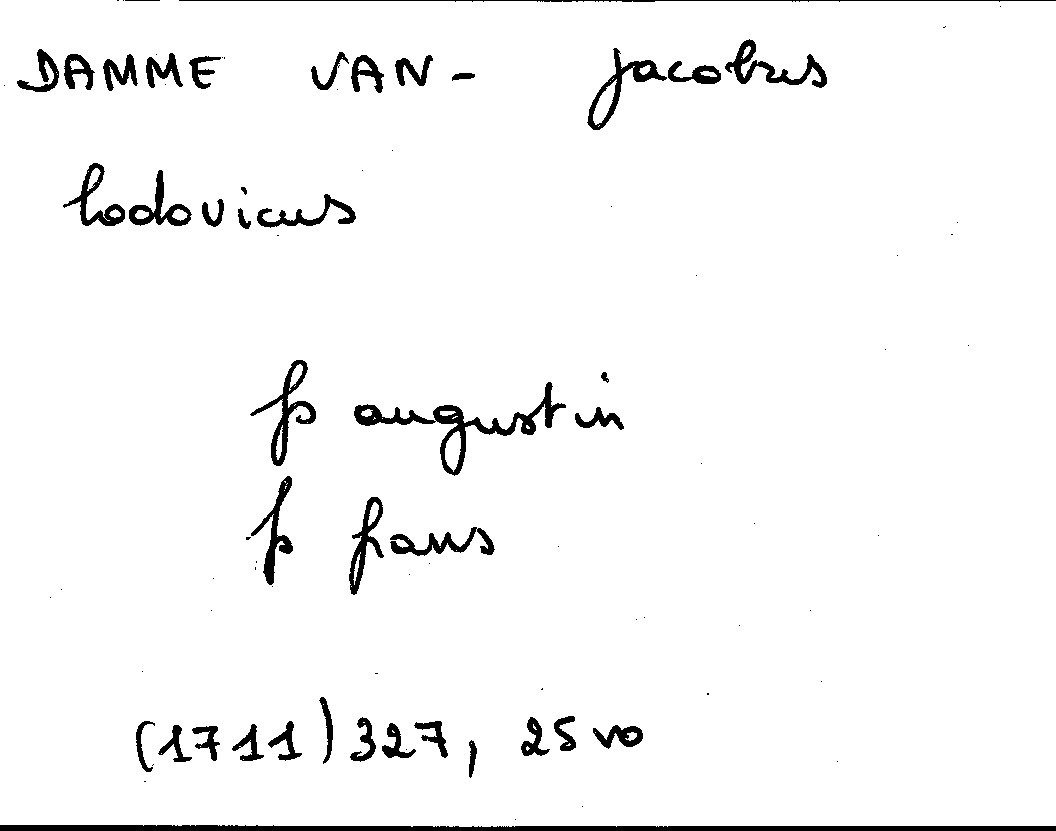 DAMME VAN- Jacobus
Lodovicus
fs augustin
fs frans
(1711) 327, 25 vo